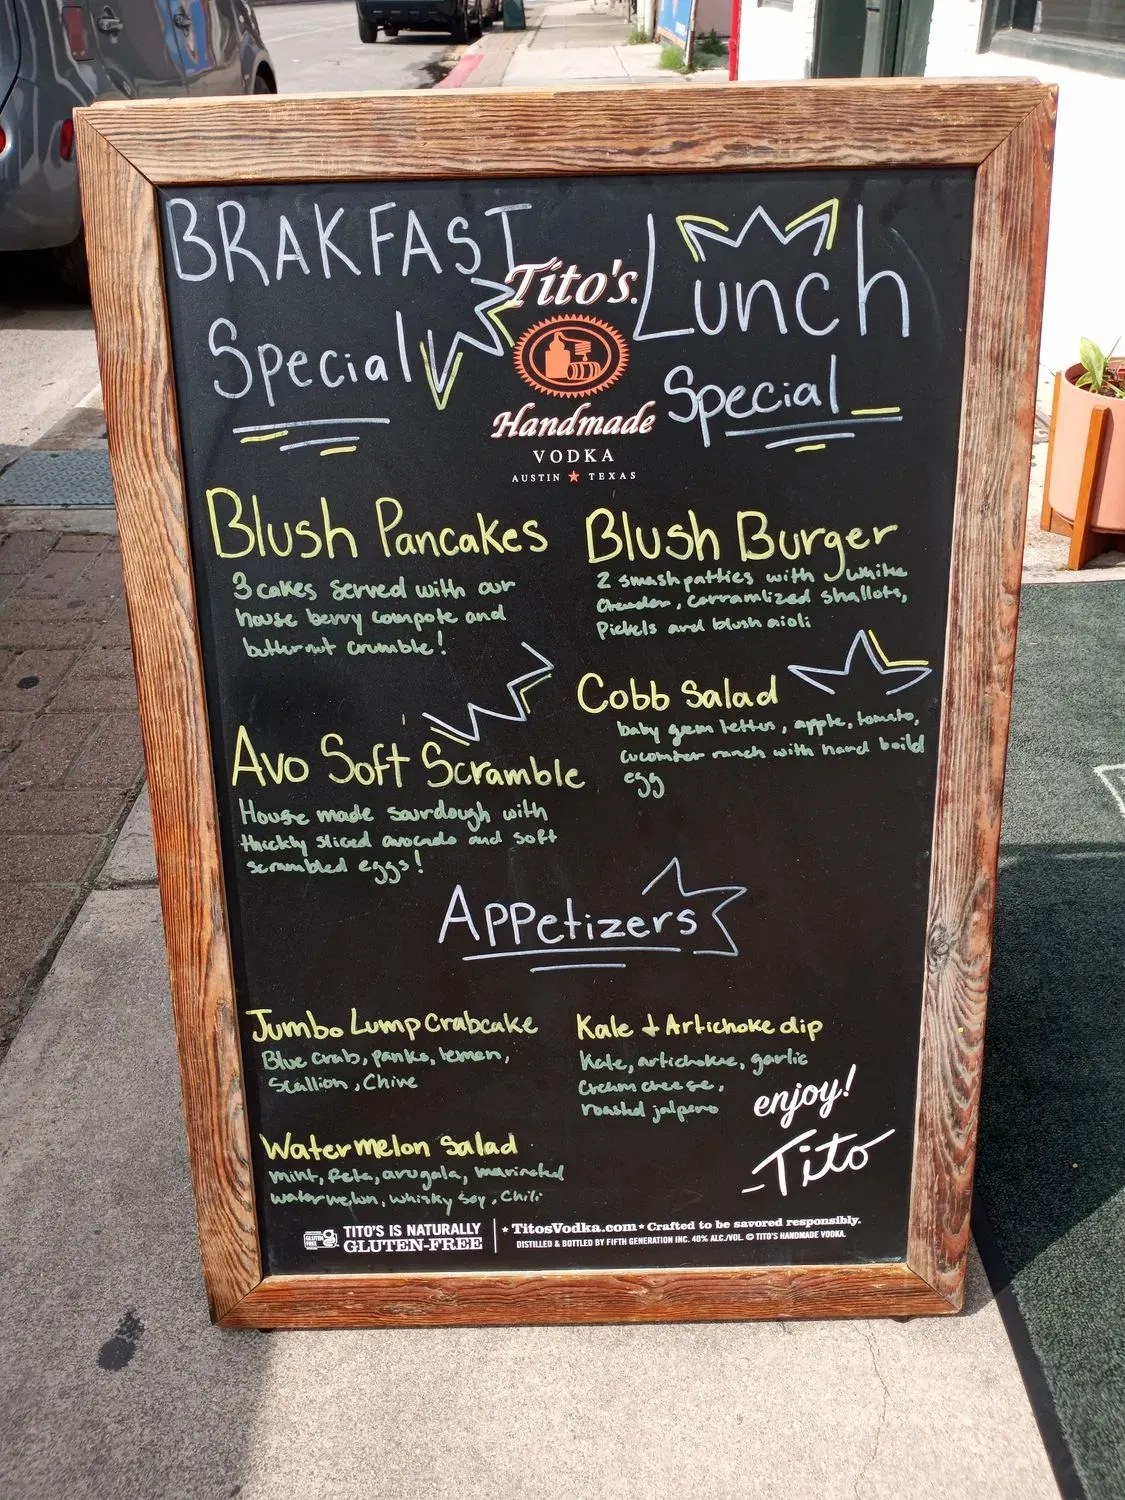 BRAKFAST
Special
Tito's.
Handmade
VODKA
AUSTIN ★ TEXAS
Lunch
Special
Blush Pancakes
3 cakes served with our
house berry compote and
butternut crumble!
Avo Soft Scramble
House made sourdough with
thickly sliced avocado and soft
scrambled eggs!
Blush Burger
2 smash patties with white
chedder, carramlized shallots,
Pickels and blush aioli
Cobb Salad
baby gem lettus, apple, tomato,
cucomber ranch with hard boild
egg
Appetizers
Jumbo Lump Crabcake
Blue crab, panko, lemon,
Scallion, Chive
Watermelon Salad
mint, feta, arugala, marinated
watermelon, whisky soy, Chili
Kale + Artichoke dip
Kale, artichoke, garlic
Cream cheese,
roasted jalpeno
enjoy!
-Tito
TITO'S IS NATURALLY
GLUTEN-FREE
★ TitosVodka.com ★ Crafted to be savored responsibly.
DISTILLED & BOTTLED BY FIFTH GENERATION INC. 40% ALC./VOL. © TITO'S HANDMADE VODKA.